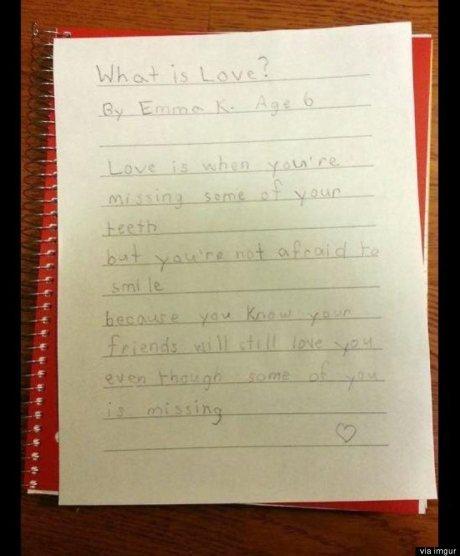 What is Love?
By Emma K. Age 6
Love is when you're
missing some of your
teeth
but you're not afraid to
smile
because you know your
friends will still love you
even though some of you
is missing
via imgur